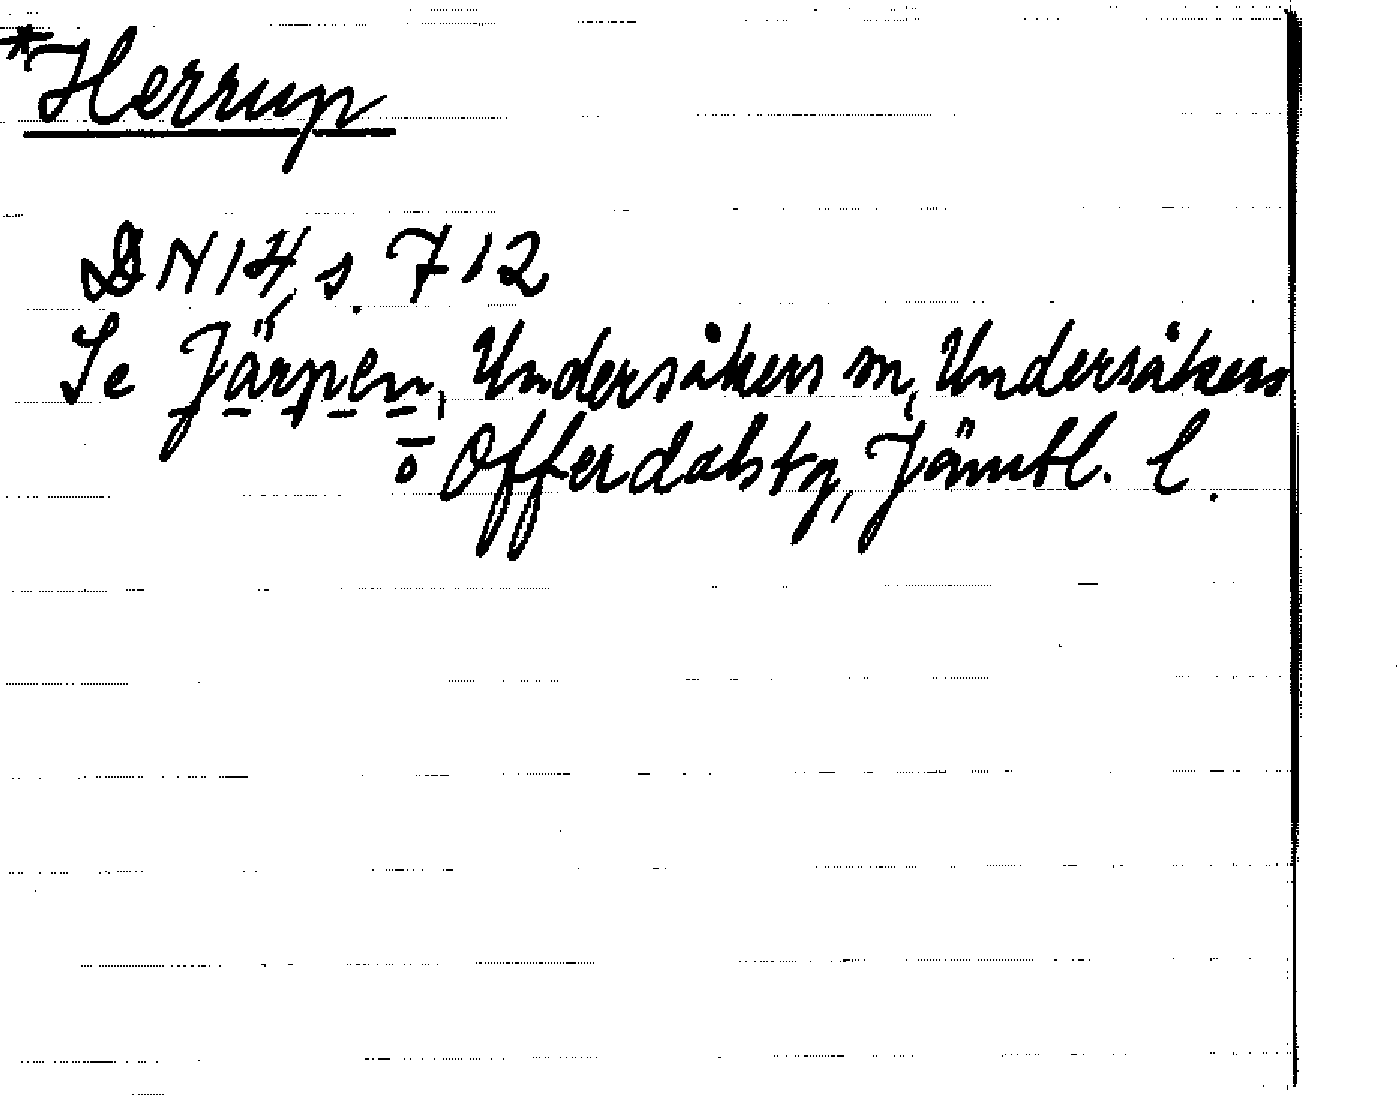 *Herrup
DN 14, s. 712
Se Järpen, Undersåkers sn, Undersåkers
o Offerdals tg, Jämtl. l.